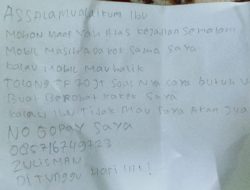 ASSALAMUALAIKUM Ibu
MOHON MAAF Yah Atas KEJADIAN SEMALAM
MOBIL MASIH saya Sama Saya
Kalau MOBIL Mau balik
TOLONG TF 70JT Soal Nya saya butuh
Buat BEROBAT Saya
Kalau Ibu TIDAK Mau Saya Akan Jua
NO GOPAY Saya
085716749723
ZULISMAN
DI TUNGGU HARI INI!